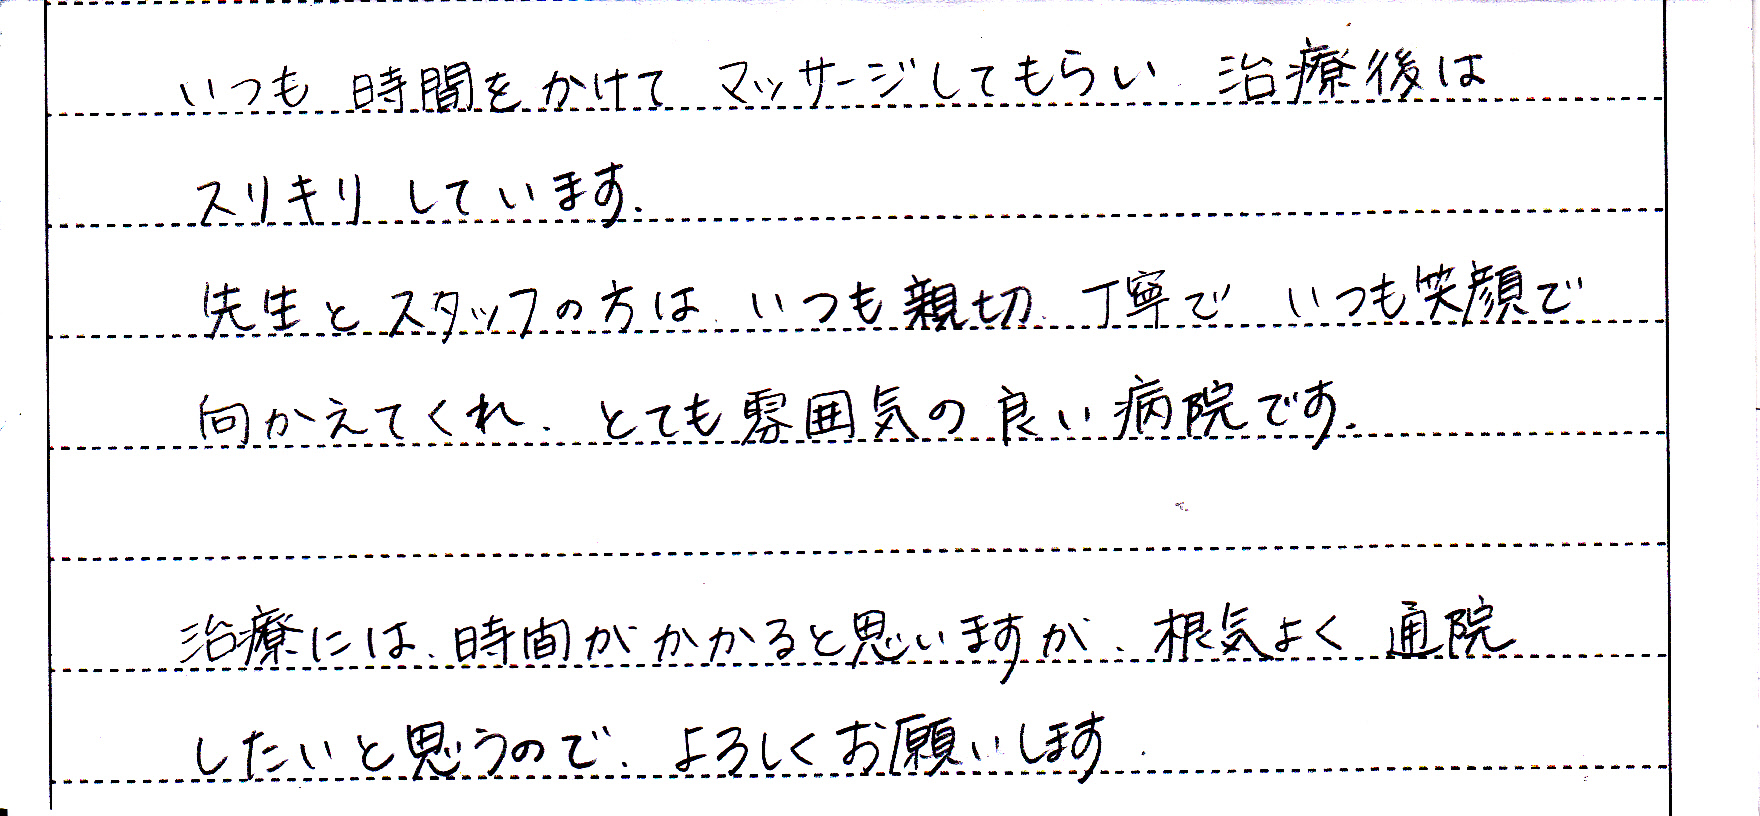 いつも時間をかけてマッサージしてもらい 治療後は
スリキリしています.
先生とスタッフの方は、いつも親切、丁寧で いつも笑顔で
向かえてくれ、とても雰囲気の良い病院です.
治療には、時間がかかると思いますが、根気よく通院
したいと思うので、よろしくお願いします.